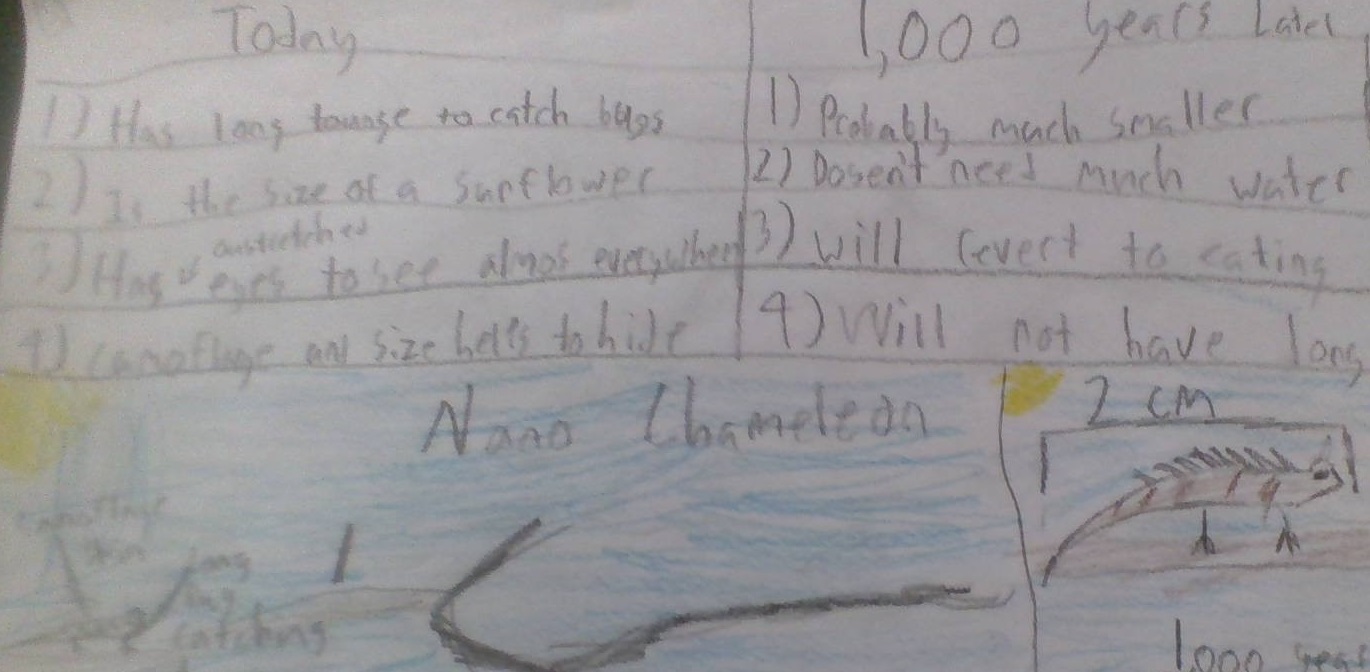 Today
1) Has long tounge to catch bugs
2) Is the size of a sunflower
outstretched
3) Has v eyes to see almos everywhere
4) camoflage and size helps to hide
1,000 years Later
1) Probably much smaller
2) Dosen't need much water
3) will revert to eating
4) Will not have long
Nano Chameleon
2 CM
camoflage
skin
long
bug
catching
1,000 year